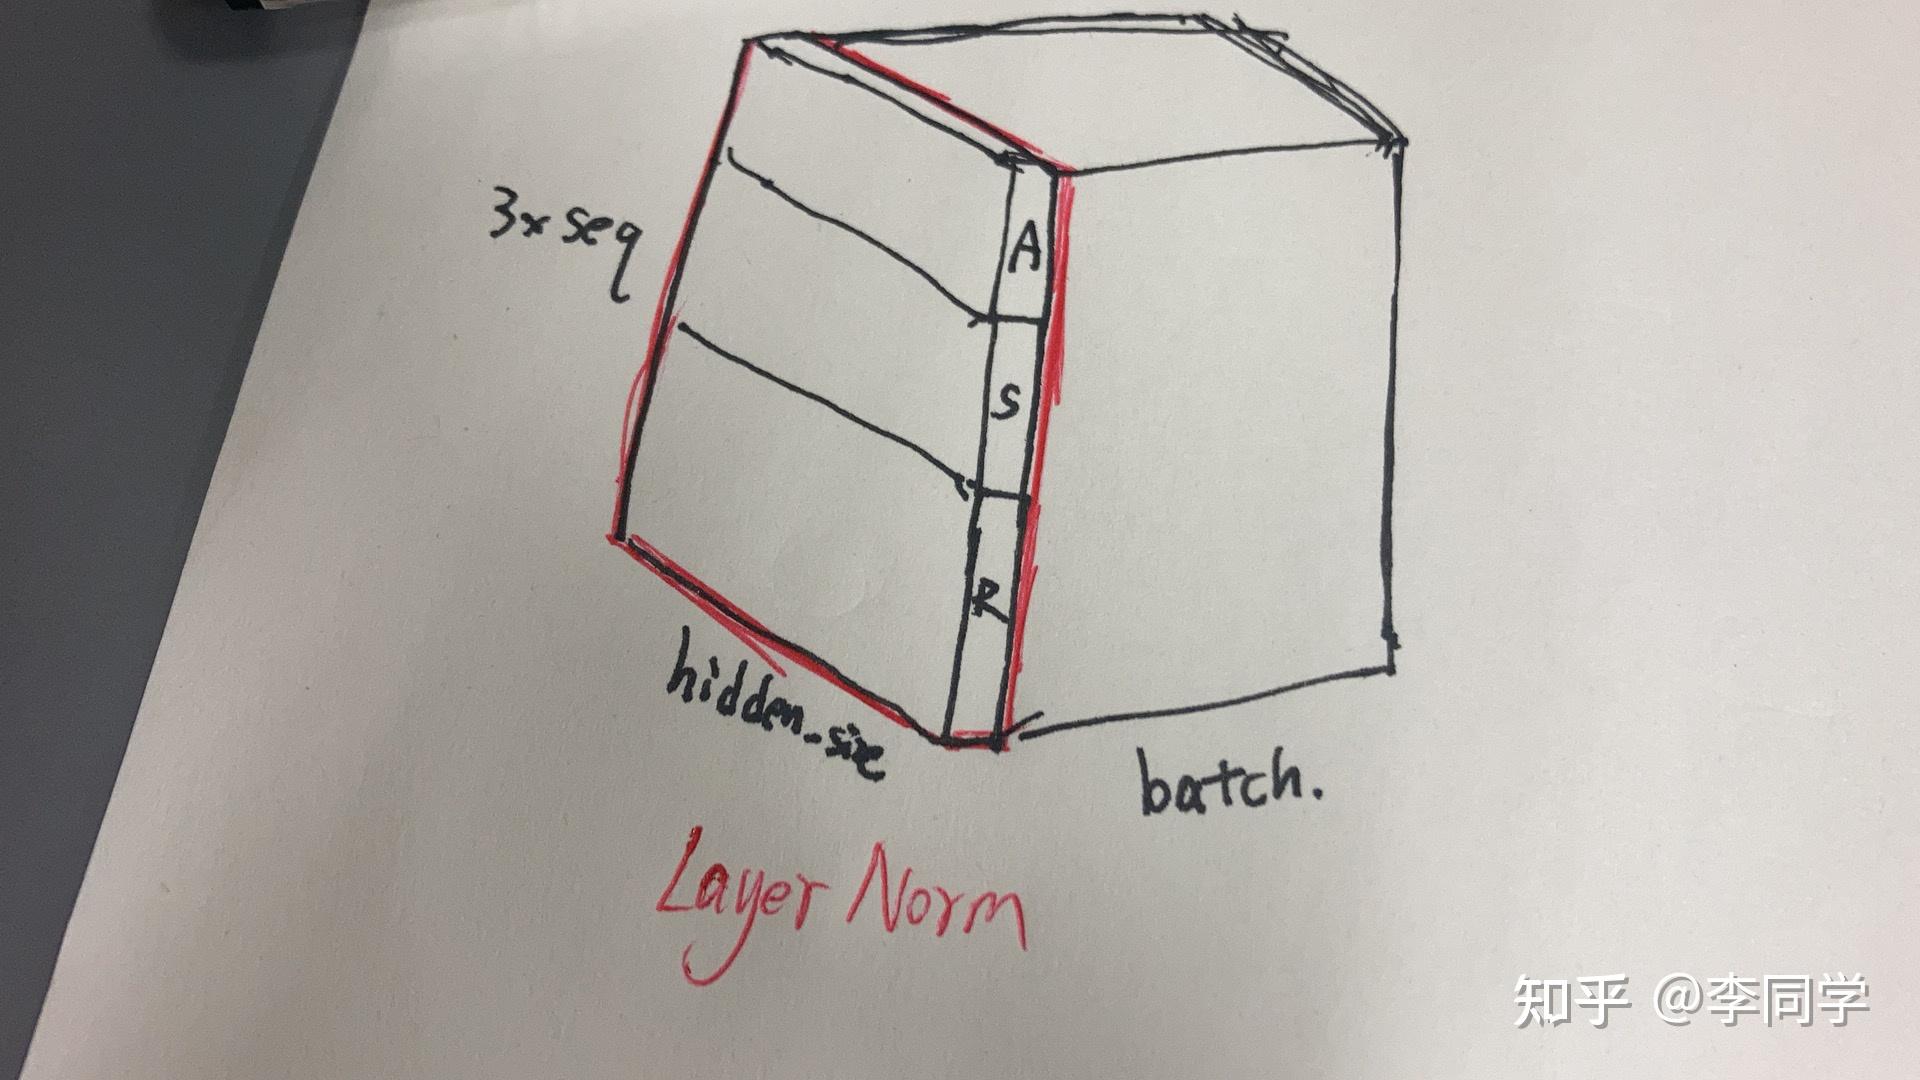 3x seq
A
S
R
hidden_size
batch.
Layer Norm
知乎 @李同学